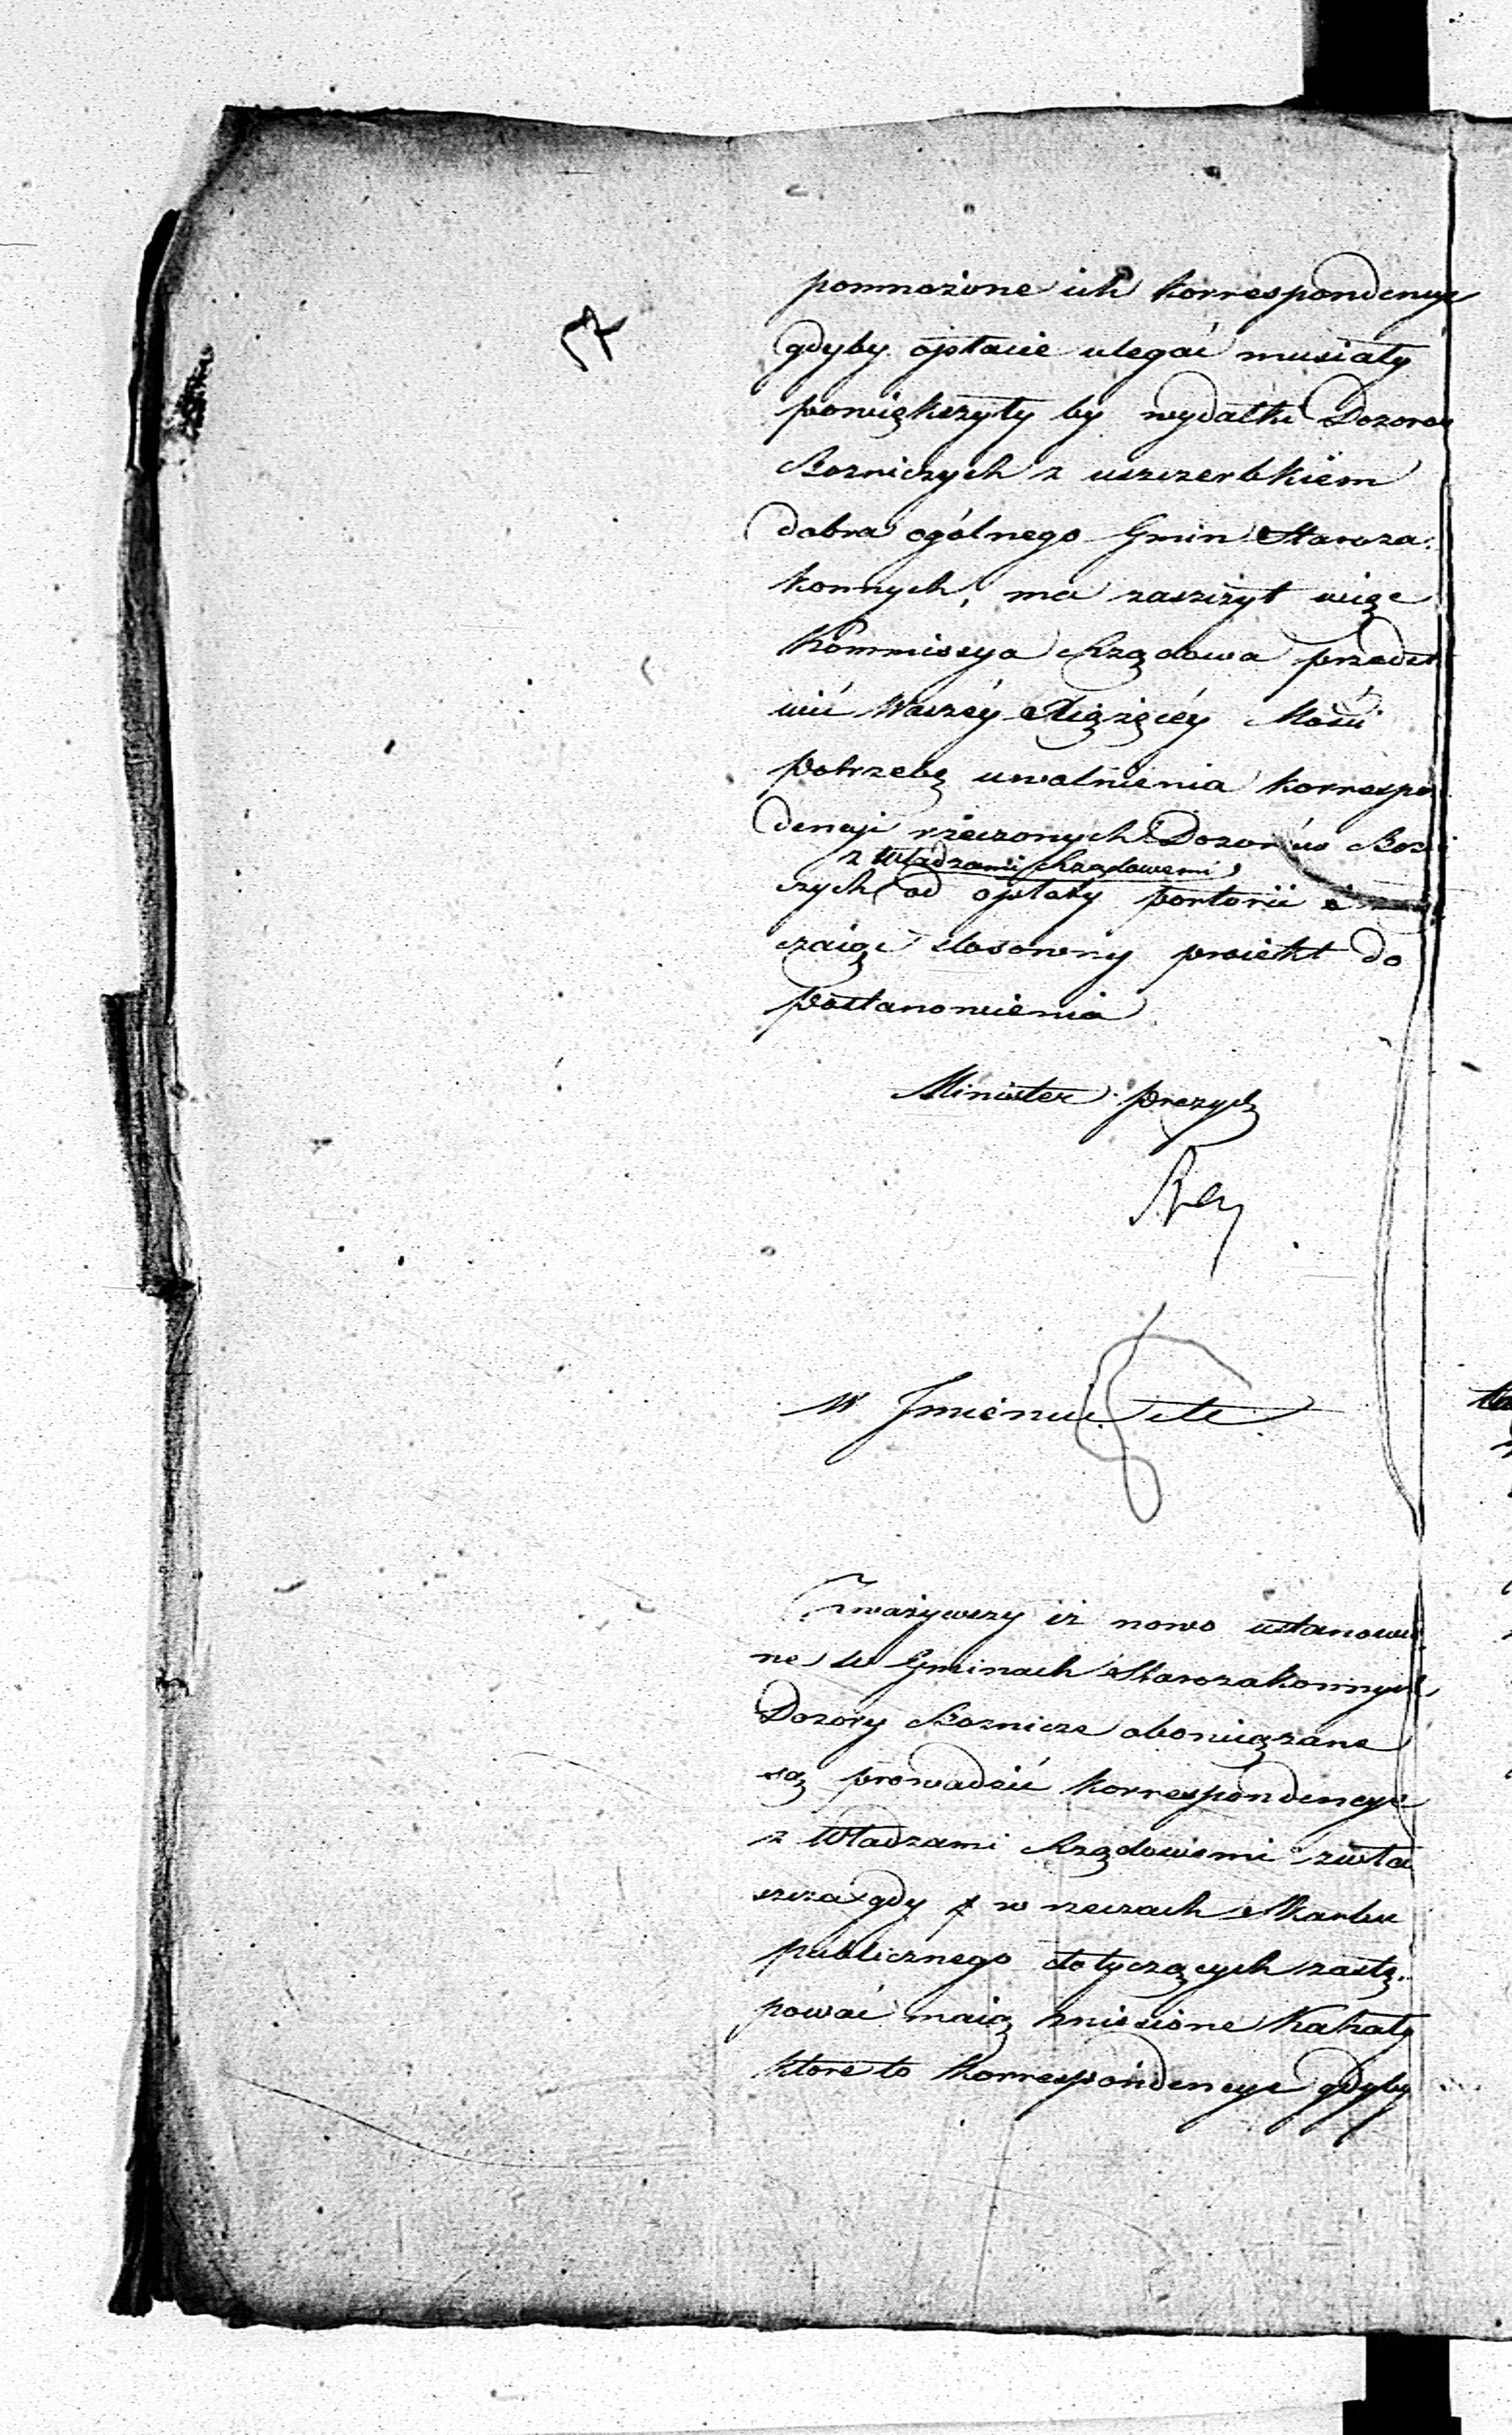 pomnożone ich korrespondencye
gdyby opłacie ulegać musiały
powiększyły by wydatki Dozorów
Bozniczych z uszczerbkiem
dobra ogólnego Gmin Staroza:
konnych, ma zaszczyt więc
Kommissya Rządowa przedst
wić Waszéy Xiążęcéy Mości
potrzebę uwolnienia korrespon
dencyi rzeczonych Dozorów Bozni
z Władzami Rządowemi
czych od opłaty portorii i
czaiąc stosowny proiekt do
postanowienia
Minister Prezyd
W Jmieniu etc
Zważywszy iż nowo ustanowio
ne w Gminach Starozakonnych
Dozory Boznicze obowiązane
są prowadzić korrespondencye
z Władzami Rządowemi zwła
szcza gdy w rzeczach Skarbu
publicznego dotyczących zastę.
pować maią zniesione Kahały
które to korrespondencye gdyby